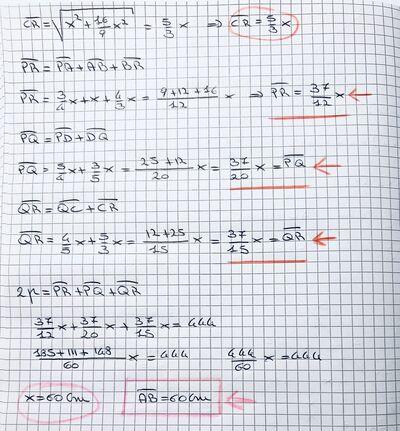 C̅R̅ = √(x² + 16/9 x²) = 5/3 x ⇒ C̅R̅ = 5/3 x
P̅R̅ = P̅A̅ + A̅B̅ + B̅R̅
P̅R̅ = 3/4 x + x + 4/3 x = (9+12+16)/12 x ⇒ P̅R̅ = 37/12 x
P̅Q̅ = P̅D̅ + D̅Q̅
P̅Q̅ = 5/4 x + 3/5 x = (25+12)/20 x = 37/20 x = P̅Q̅
Q̅R̅ = Q̅C̅ + C̅R̅
Q̅R̅ = 4/5 x + 5/3 x = (12+25)/15 x = 37/15 x = Q̅R̅
2p = P̅R̅ + P̅Q̅ + Q̅R̅
37/12 x + 37/20 x + 37/15 x = 444
(185+111+148)/60 x = 444 444/60 x = 444
x = 60 cm A̅B̅ = 60 cm